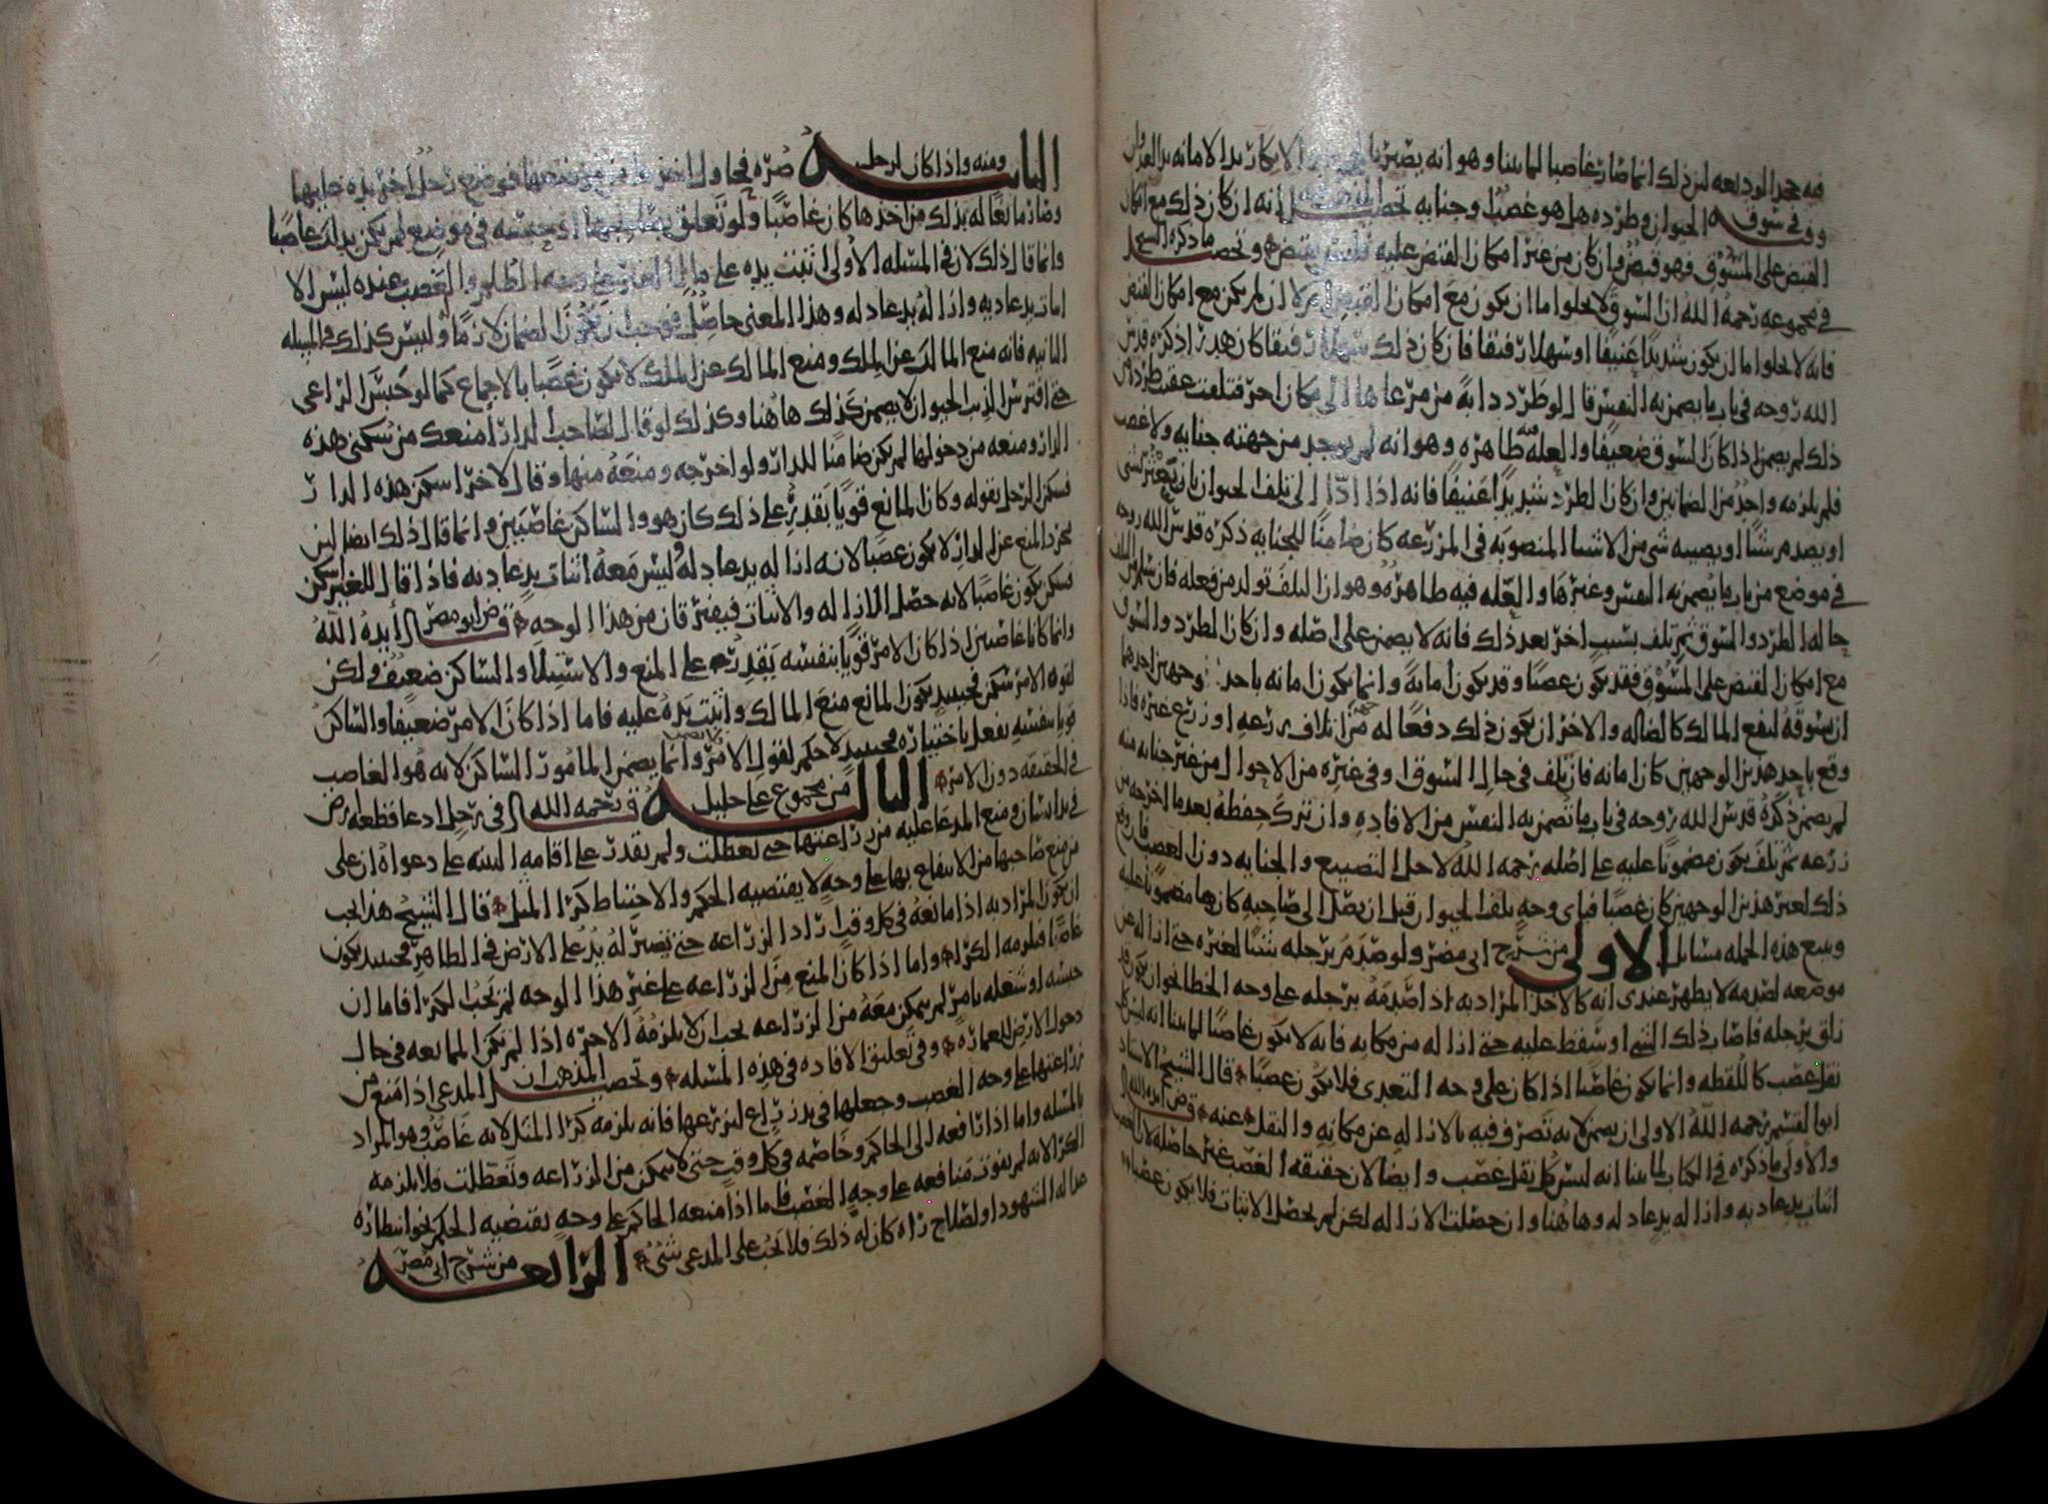 فيه جحد الوديعه لان ذلك انما صار غاصبا لما بينا وهو انه يصير الانكار يد الامانه يد العدوان
وفي سوق الحيوان وطرده هل هو غصب او جنايه تحصيل انه ان كان ذلك مع امكان
القبض على المسوق فهو قبض وان كان من غير امكان القبض عليه فليس بقبض وتحصيل ما ذكره الشيخ
في مجموعه رحمه الله ان السوق لا يخلو اما ان يكون مع امكان القبض ام لا ان لم يكن مع امكان القبض
فانه لا يخلوا ما ان يكون شديدا عنيفا او سهلا رفيقا فان كان ذلك سهلا رفيقا كان هدرا ذكره قدس
الله روحه في باب ما يضمن به النفس قال لو طرد دابة من مرعاها الى مكان اخر فتلفت عقيب طرده
ذلك لم يضمن اذا كان السوق ضعيفا والعله فيه ظاهره وهو انه لم يوجد من جهته جنايه ولا غصب
فلم يلزمه واحد من الضمانين وان كان الطرد شديدا عنيفا فانه اذا ادا الى تلف الحيوان بان يعثر بشي
او يصدم شيا او يصيبه شي من الاشيا المنصوبه في المزرعه كان ضامنا للجنايه ذكره قدس الله روحه
في موضع من باب ما يضمن به النفس وغيرها والعله فيه ظاهره وهو ان التلف تولد من فعله فان سلم من التلف
حاله الطرد والسوق ثم تلف بسبب اخر بعد ذلك فانه لا يضمن على اصله وان كان الطرد والسوق
مع امكان القبض على المسوق فقد يكون غصبا وقد يكون امانة وانما يكون امانه باحد وجهين احدهما
ان يسوقه لنفع المالك كالضاله والاخر ان يكون ذلك دفعا له من اتلاف زرعه او زرع غيره فاذا
وقع باحد هذين الوجهين كان امانه فان تلف في حال السوق او في غيره من الاحوال من غير جنايه منه
لم يضمن ذكره قدس الله روحه في باب ما تضمن به النفس من الافاده وان ترك حفظه بعد ما اخرجه من
زرعه ثم تلف يكون مضمونا عليه على اصله رحمه الله لاجل التضييع والجنايه دون الغصب فان وقع
ذلك لغير هذين الوجهين كان غصبا فباي وجه تلف الحيوان قبل ان يصل الى صاحبه كان هذا مضمونا عليه
ويتبع هذه الجمله مسائل الاولى من شرح ابي مضر ولو صدم برجله شيا لغيره حتى ازاله عن
موضعه لصدمه لا يظهر عندي انه كالاخذ المراد به اذا صدمه برجله على وجه الخطا نحو ان يكون قد
زلق برجله فاصاب ذلك الشي او سقط عليه حتى ازاله من مكانه فانه لا يكون غاصبا لما بينا انه ليس كل
نقل غصب كاللقطه وانما يكون غاصبا اذا كان على وجه التعدي فلا يكون غصبا قال الشيخ الاستاد
ابو القسم رحمه الله الاولى ان يضمن لانه تصرف فيه بالازاله عن مكانه والنقل عنه قض ايده الله
والاولى ما ذكره في الكتاب لما بينا انه ليس كل نقل غصب وايضا لان حقيقه الغصب غير حاصله لان الغصب
اثبات يد عاديه وازاله يد عادله وهاهنا وان حصلت الازاله لكن لم يحصل الاثبات فلا يكون غصبا
الثانيه ومنه واذا كان لرجل صره فحاول فوضع رجل اخر يده عليها
وصار مانعا له بذلك من اخذها كان غاصبا ولو تعلق في موضع لم يكن بذلك غاصبا
وانما قال ذلك لان في المسئله الاولى اثبتت يده على مال الغير على وجه الظلم والغصب عنده ليس الا
اثبات يد عاديه وازاله يد عادله وهذا المعنى حاصل فوجب ان يكون الضمان لازما وليس كذلك في المسئله
الثانيه فانه منع المالك عن الملك ومنع المالك عن الملك لا يكون غصبا بالاجماع كما لو حبس الراعي
حتى افترس الذيب الحيوان لا يضمن كذلك هاهنا وكذلك لو قال لصاحب الدار امنعك من سكنى هذه
الدار ومنعه من دخولها لم يكن ضامنا للدار ولو اخرجه ومنعه منها وقال لاخر اسكن هذه الدار
فسكن الرجل بقوله وكان المانع قويا يقدر على ذلك كان هو والساكن غاصبين وانما قال ذلك ايضا لان
مجرد المنع عن الدار لا يكون غصبا لانه ازاله يد عادله وليس معه اثبات يد عاديه فاذا قال للغير اسكن
فسكن يكون غاصبا لانه حصل الازاله والاثبات فيفترقان من هذا الوجه قض ابو مضر ايده الله
وانما كانا غاصبين اذا كان الامر قويا بنفسه يقدر على المنع والاستيلا والساكن ضعيف ولكن
لقوه الامر سكن فحينيذ يكون المانع منع المالك واثبت يده عليه فاما اذا كان الامر ضعيفا والساكن
قويا بنفسه يفعل باختياره فحينيذ لا حكم لقول الامر وانما يضمن المامور الساكن لانه هو الغاصب
في الحقيقه دون الامر الثالثه من مجموع علي خليل رحمه الله في رجل ادعا قطعه ارض
في يد انسان ومنع المدعا عليه من زراعتها حتى تعطلت ولم يقدر على اقامه البينه على دعواه ان على
من منع صاحبها من الانتفاع بها على وجه لا يقتضيه الحكم والاحتياط كرا المثل قال الشيخ هذا يجب
ان يكون المراد به اذا مانعه في كل وقت اراد الزراعه حتى تصير له يد على الارض في الظاهر فحينيذ يكون
غاصبا فيلزمه الكرا واما اذا كان المنع من الزراعه على غير هذا الوجه لم يجب الكرا فاما ان
حبسه او شغله بامر لم يمكن معه من الزراعه يجب ان لا يلزمه الاجره اذا لم تكن الممانعه في حال
دخول الارض للعماره وفي تعليق الافاده في هذه المسئله وتحصيل المذهب ان المدعي اذا منع من
زراعتها على وجه الغصب وجعلها في يد زراع لزرعها فانه يلزمه كرا المثل لانه غاصب وهو المراد
بالمسئله واما اذا رافعه الى الحاكم وخاصمه في كل وقت حتى لا يمكن من الزراعه وتعطلت فلا يلزمه
الكرا لانه لم يفوت منافعه على وجه الغصب فاما اذا منعه الحاكم على وجه يقتضيه الحكم نحو انتظاره
عداله الشهود او لصلاح راه كان له ذلك فلا يجب على المدعي شي الرابعه من شرح ابي مضر